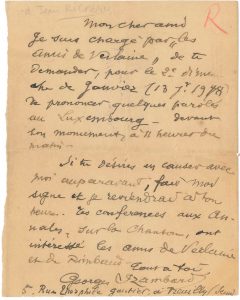 R
Mon cher ami
Je suis chargé par "les
amis de Verlaine", de te
demander, pour le 2e diman
che de Janvier (13 j. 1918
de prononcer quelques paroles
au Luxembourg – devant
son monument, à 11 heures du
matin.
Si tu désires en causer avec
moi auparavant, fais moi
signe et je reviendrai à ton
heure. Tes conférences aux An-
nales, sur la Chanson, ont
intéressé les amis de Verlaine
et de Rimbaud.
Tout à toi
Georges Izambard
5, Rue Théophile gautier, à Neuilly s/Seine